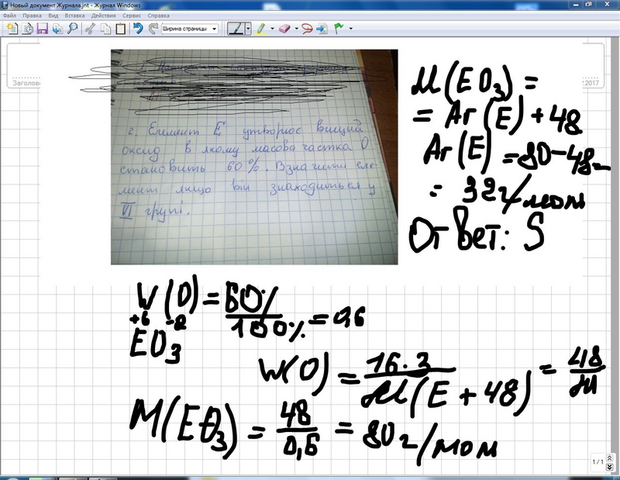 Новый документ Журнала.jnt - Журнал Windows
Файл Правка Вид Вставка Действия Сервис Справка
Ширина страницы
2017
2. Елемент E утворює вищий
оксид в якому масова частка O
становить 60%. Визначити еле-
мент якщо він знаходиться у
VI групі.
M(EO3) =
= Ar(E) + 48
Ar(E) = 80-48=
= 32г/мол
Ответ: S
W(O) = 60%/100% = 0,6
+6 -2
EO3
W(O) = 16·3/M(E+48) = 48/M
M(EO3) = 48/0,6 = 80г/мол
1/1